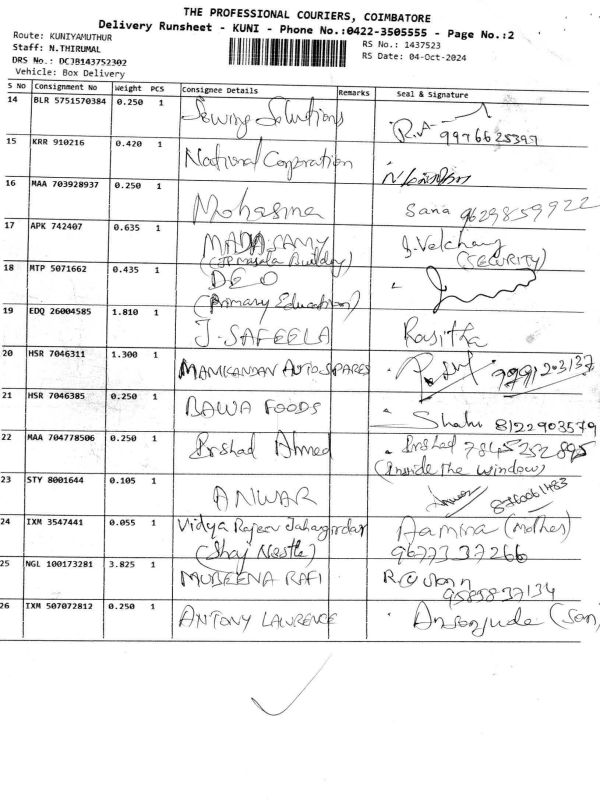 THE PROFESSIONAL COURIERS, COIMBATORE
Delivery Runsheet - KUNI - Phone No.:0422-3505555 - Page No.:2
Route: KUNIYAMUTHUR
RS No.: 1437523
Staff: N.THIRUMAL
RS Date: 04-Oct-2024
DRS No.: DCJB143752302
Vehicle: Box Delivery
S No Consignment No Weight PCS Consignee Details Remarks Seal & Signature
14 BLR 5751570384 0.250 1 Sewing Solutions R.A 9976625397
15 KRR 910216 0.420 1 National Corporation
16 MAA 703928937 0.250 1 Mohasina Sana 9629859922
17 APK 742407 0.635 1 MADASAMY J.Velchamy
(JP masala Building) (SECURITY)
18 MTP 5071662 0.435 1 DEO
(Primary Education)
19 EDQ 26004585 1.810 1 J.SAFEELA Rasitha
20 HSR 7046311 1.300 1 MANIKANDAN AUTO SPARES
21 HSR 7046385 0.250 1 BAWA FOODS Shahu 8122903579
22 MAA 704778506 0.250 1 Irshad Ahmed Irshad 7845252895
(inside the window)
23 STY 8001644 0.105 1 ANWAR Anwar
24 IXM 3547441 0.055 1 Vidya Rajeev Jahagirdar Aamina (Mother)
(Shaj Nestle) 9677337266
25 NGL 100173281 3.825 1 MUBEENA RAFI
9585837134
26 IXM 507072812 0.250 1 ANTONY LAWRENCE Ansonjude (Son)